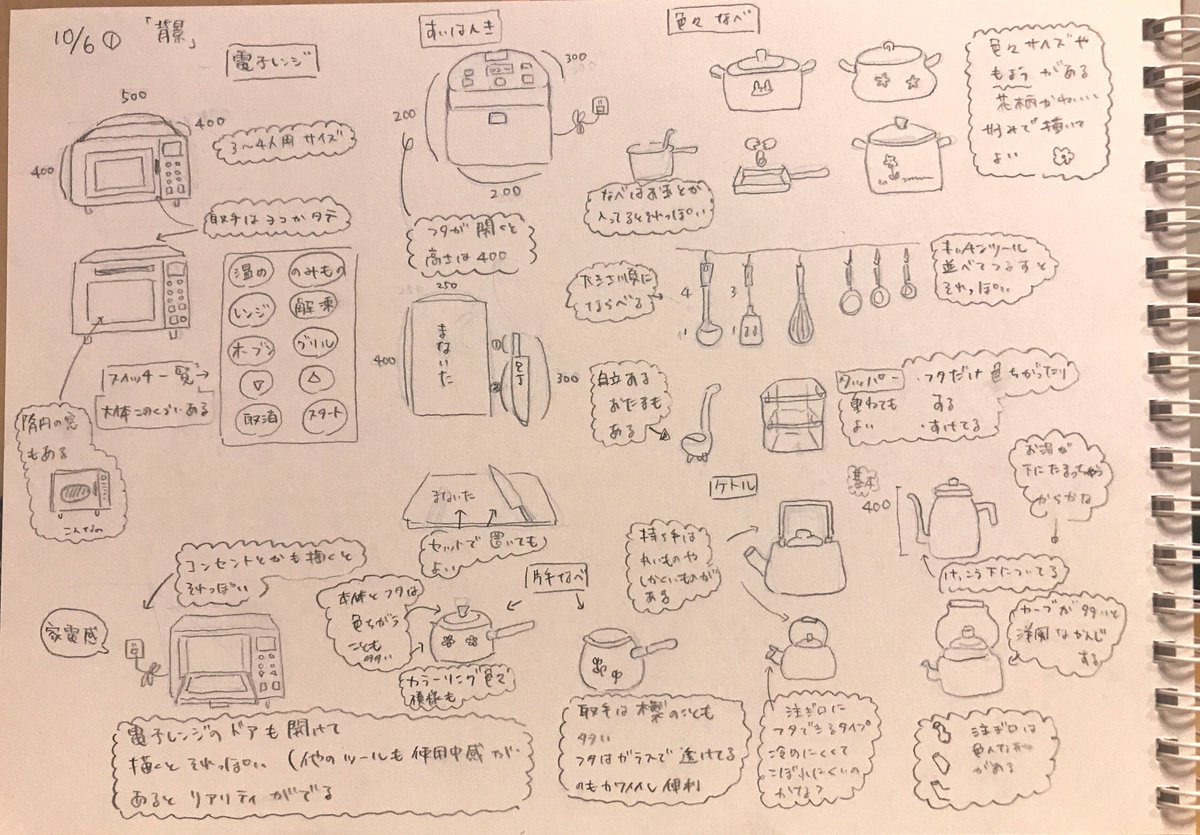 10/6 ① 「背景」
電子レンジ
500
400
400
3〜4人用サイズ
取手はヨコかタテ
温め
のみもの
レンジ
解凍
オーブン
グリル
▽
△
取消
スタート
スイッチ一覧→
大体このくらいある
楕円の窓
もある
こんなの
コンセントとかも描くと
それっぽい
家電感
電子レンジのドアも開けて
描くとそれっぽい(他のツールも使用中感が
あるとリアリティがでる
すいはんき
300
200
200
フタが開くと
高さは400
250
400
まないた
①
②
包丁
300
まないた
セットで置いても
よい
片手なべ
本体とフタは
色ちがう
ことも
多い
カラーリング色々
模様も
取手は木製のことも
多い
フタはガラスで透けてる
のもカワイイし便利
色々なべ
色々サイズや
もようがある
花柄かわいい
好みで描いて
よい
なべはおたまとか
入ってるとそれっぽい
キッチンツール
並べてつるすと
それっぽい
大きさ順に
ならべる
4
1
3
1
自立する
おたまも
ある
タッパー
重ねても
よい
・フタだけ色ちがったり
する
・すけてる
ケトル
持ち手は
丸いものや
しかくいものが
ある
基本
400
お湯が
下にたまっちゃう
からかな
けっこう下についてる
カーブが多いと
洋風なかんじ
する
注ぎ口に
フタできるタイプ
冷めにくくて
こぼれにくいの
かな?
注ぎ口は
色んな形
がある